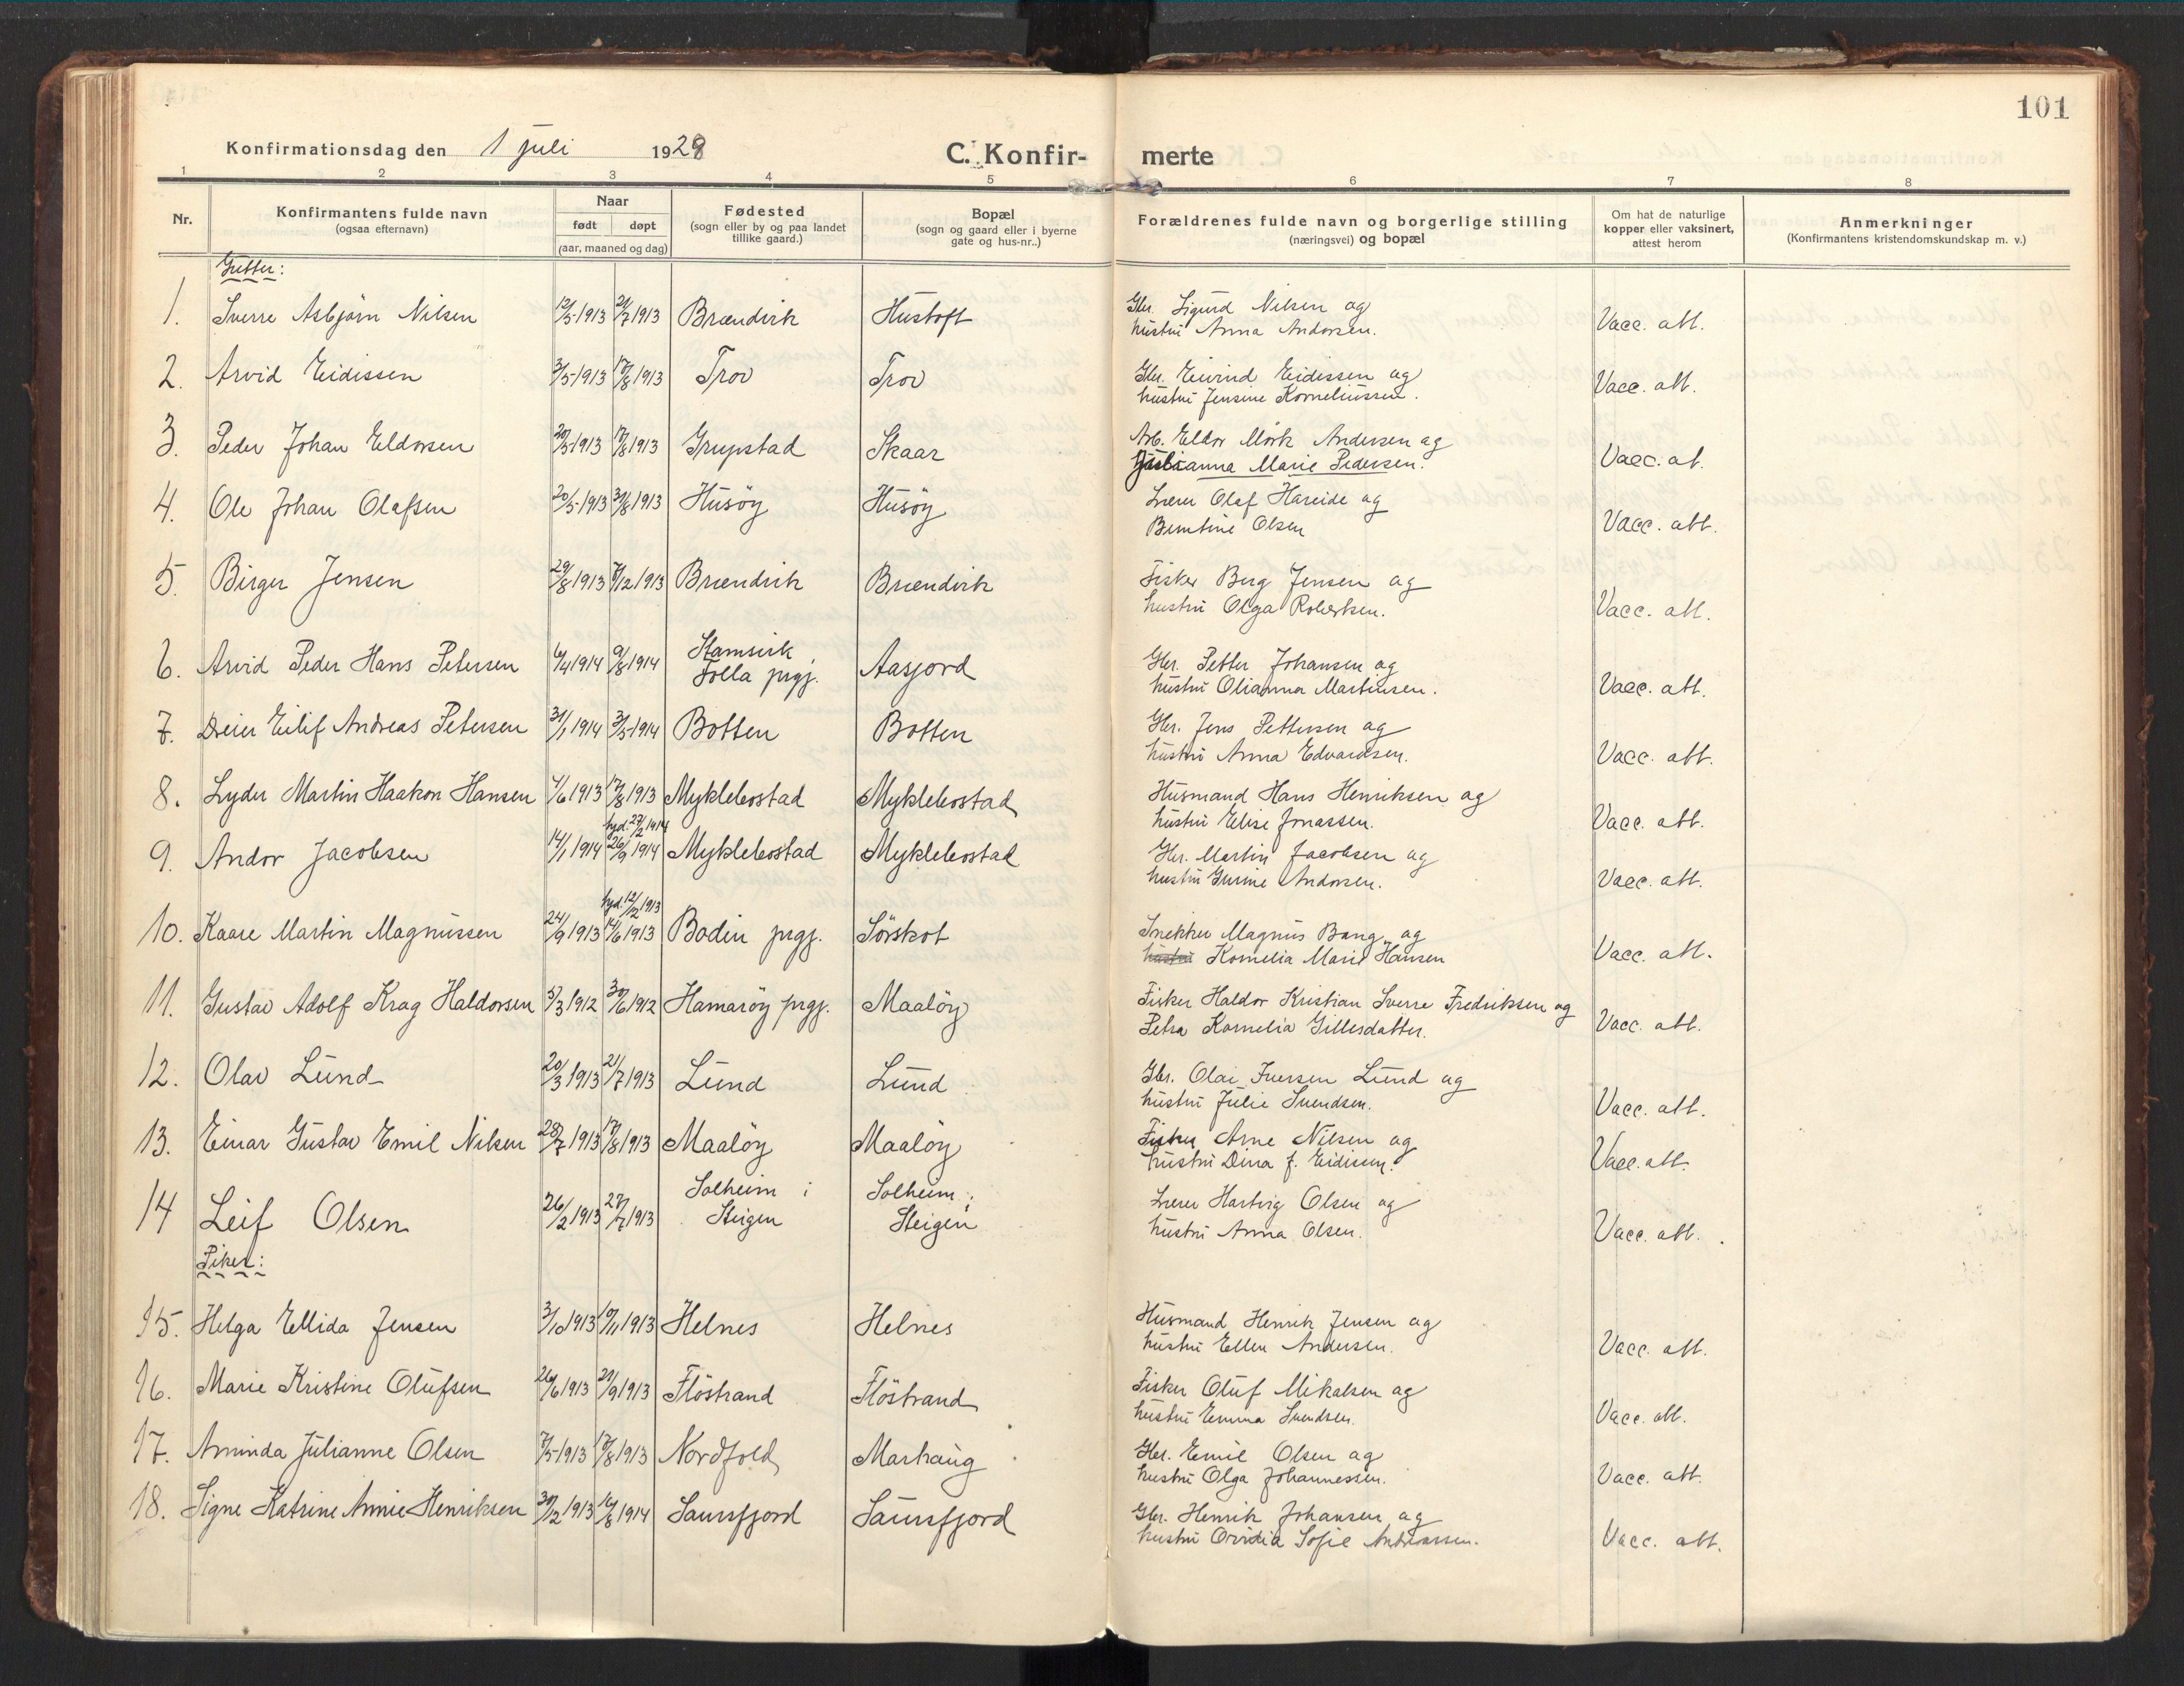 101
Konfirmationsdag den 1 juli 1928 C. Konfir- merte
1 2 3 4 5 6 7 8
Nr. Konfirmantens fulde navn (ogsaa efternavn) Naar født døpt (aar, maaned og dag) Fødested (sogn eller by og paa landet tillike gaard.) Bopæl (sogn og gaard eller i byerne gate og hus-nr..) Forældrenes fulde navn og borgerlige stilling (næringsvei) og bopæl Om hat de naturlige kopper eller vaksinert, attest herom Anmerkninger (Konfirmantens kristendomskundskap m. v.)
Gutter:
1. Sverre Asbjørn Nilsen 12/5 1913 21/7 1913 Brændvik Hustoft Gbr. Sigurd Nilsen og Vacc. att.
hustru Anna Andorsen.
2. Arvid Eidissen 3/5 1913 17/8 1913 Trov Trov Gbr. Eivind Eidissen og Vacc. att.
hustru Jensine Korneliussen.
3. Peder Johan Eldorsen 20/5 1913 17/8 1913 Grupstad Skaar Arb. Eldor Mörk Andersen og Vacc. at.
Julianna Marie Pedersen.
4. Ole Johan Olafsen 20/5 1913 31/8 1913 Husöy Husöy Lærer Olaf Hareide og Vacc. att.
Berntine Olsen
5. Birger Jensen 29/8 1913 7/12 1913 Brændvik Brændvik Fisker Berg Jensen og Vacc. att.
hustru Olga Robertsen.
6. Arvid Peder Hans Petersen 6/4 1914 9/8 1914 Stamsvik, Folla prgj. Aasjord Gbr. Petter Johansen og Vacc. att.
hustru Olianna Martinsen.
7. Dreier Eilif Andreas Petersen 31/1 1914 3/5 1914 Botten Botten Gbr. Jens Pettersen og Vacc. att.
hustru Anna Edvardsen.
8. Lyder Martin Haakon Hansen 4/6 1913 17/8 1913 Myklebostad Myklebostad Husmand Hans Henriksen og Vacc. att.
hustru Elise Jonassen.
hjd. 27/2 1914
9. Andor Jacobsen 14/1 1914 26/9 1914 Myklebostad Myklebostad Gbr. Martin Jacobsen og Vacc. att.
hustru Gurine Andorsen.
hjd. 12/12 1913
10. Kaare Martin Magnussen 24/9 1913 14/6 1913 Bodin prgj. Sörskot Snekker Magnus Bang og Vacc. att.
hustru Kornelia Marie Hansen
11. Gustav Adolf Krag Haldorsen 5/3 1912 30/6 1912 Hamaröy prgj. Maalöy Fisker Haldor Kristian Sverre Fredriksen og Vacc. att.
Petra Kornelia Gillesdatter.
12. Olav Lund 20/3 1913 21/7 1913 Lund Lund Gbr. Olai Iversen Lund og Vacc. att.
hustru Julie Svendsen.
13. Einar Gustav Emil Nilsen 28/7 1913 17/8 1913 Maalöy Maalöy Fisker Arne Nilsen og Vacc. att.
hustru Dina f. Eidissen.
14 Leif Olsen 26/2 1913 27/7 1913 Solheim i Steigen Solheim i Steigen Lærer Hartvig Olsen og Vacc. att.
hustru Anna Olsen.
Piker:
15. Helga Ellida Jensen 3/10 1913 19/11 1913 Helnes Helnes Husmand Henrik Jensen og Vacc. att.
hustru Ellen Andersen.
16. Marie Kristine Olufsen 26/6 1913 21/9 1913 Flöstrand Flöstrand Fisker Oluf Mikalsen og Vacc. att.
hustru Emma Svendsen.
17. Aminda Julianne Olsen 7/5 1913 17/8 1913 Nordfold Marhaug Gbr. Emil Olsen og Vacc. att.
hustru Olga Johannessen.
18. Signe Katrine Annie Henriksen 30/12 1913 16/8 1914 Saursfjord Saursfjord Gbr. Henrik Johansen og Vacc. att.
hustru Ovidia Sofie Andreassen.